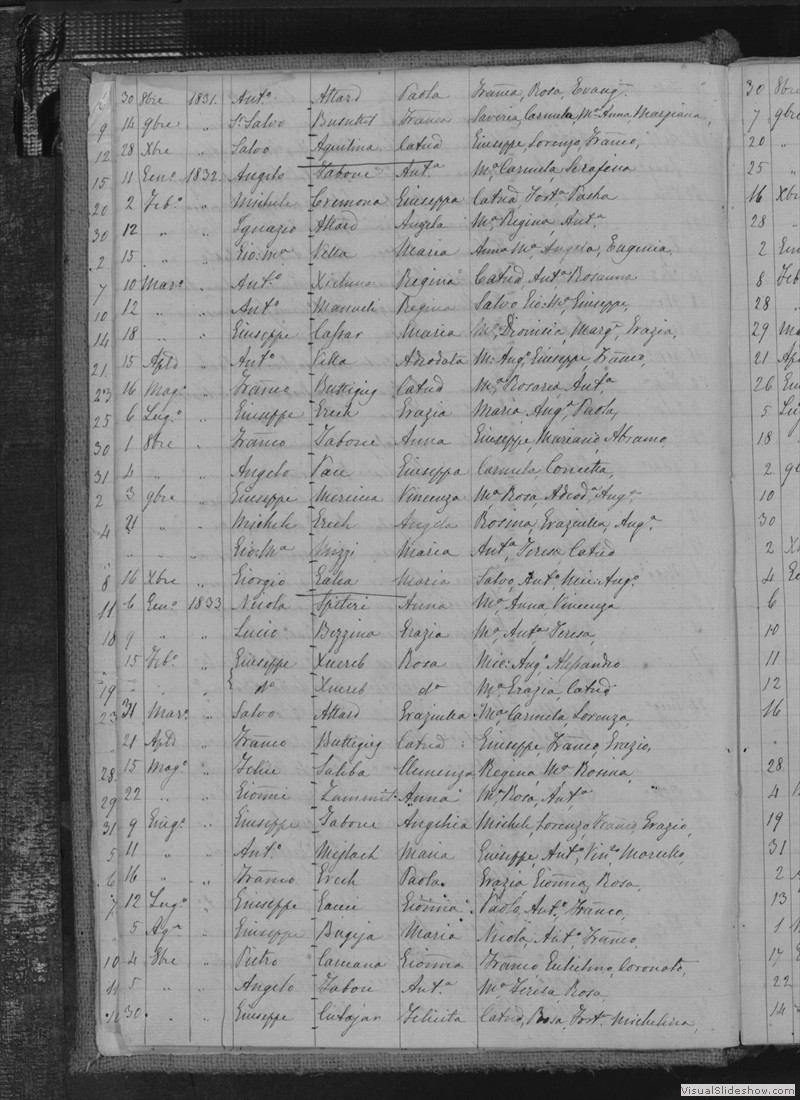 30 8bre 1831. Ant.o Attard Paola Franca, Rosa, Evang.
9 14 9bre " S.r Salvo Busuttil Franca Saveria, Carmela, M.a Anna Margiana,
12 28 Xbre " Salvo Aquilina Catud Giuseppe, Lorenzo, Franco,
15 11 Gen.o 1832. Angelo Tabone Ant.a M.a Carmela, Serafina
20 2 Feb.o " Michele Cremona Giuseppa Catud, Fort.a Pasha
30 12 " " Ignazio Attard Angela M.a Regina, Ant.a
2 15 " " Gio: M.a Vella Maria Anna M.a, Angela, Eugenia,
7 10 Mar.o " Ant.o Xicluna Regina Catud, Ant.a Rosanna
10 12 " " Ant.o Manueli Regina Salvo, Gio: M.a, Giuseppe,
14 18 " " Giuseppe Caspar Maria M.a, Dionisia, Marg.a, Grazia,
21 15 Aple " Ant.o Vella Adeodata M: Ang.a, Giuseppe, Franco,
23 16 Mag.o " Franc Buttigieg Catud M.a Rosaria, Ant.a
25 6 Lug.o " Giuseppe Grech Grazia Maria, Ang.a, Paola,
30 1 8bre " Franco Tabone Anna Giuseppe, Mariano, Abramo,
31 4 " " Angelo Pau Giuseppa Carmela, Concetta,
2 3 9bre " Giuseppe Mercieca Vincenza M.a Rosa, Adeod.a, Ang.a
4 21 " " Michele Grech Angela Rosina, Graziulla, Ang.a
" " " Gio: M.a Mizzi Maria Ant.a, Teresa, Catud
8 16 Xbre " Giorgio Galea Maria Salvo, Ant.o, Mic: Ang.o
11 6 Gen.o 1833 Nicola Spiteri Anna M.a Anna Vincenza
18 9 " " Lucio Bezzina Grazia M.a, Ant.a Teresa,
" 15 Feb.o " Giuseppe Xuereb Rosa Mic: Ang.o Alessandro
19 " " d.o Xuereb d.a M.a Grazia, Catud
23 31 Mar.o " Salvo Attard Graziulla M.a Carmela, Lorenza,
" 21 Aple " Franco Buttigieg Catud Giuseppe, Franco, Grazio,
28 15 Mag.o " Felice Saliba Clemenza Regina, M.a Rosina,
29 22 " " Gionni Zammit Anna M.a Rosa, Ant.a
31 9 Giug.o " Giuseppe Tabone Angelica Michele, Lorenzo, Franc, Grazio,
5 11 " " Ant.o Mejlach Maria Giuseppe, Ant.o, Vin.zo, Marcello,
6 16 " " Franco Grech Paola Grazia, Gionna, Rosa,
7 12 Lug.o " Giuseppe Cauci Gionna Paolo, Ant.o, Franco,
5 Ag.o " Giuseppe Bugeja Maria Nicola, Ant.o, Franco,
10 4 8bre " Pietro Camana Gionna Franco, Coronato,
11 5 " " Angelo Tabone Ant.a M.a Teresa Rosa
12 30 " Giuseppe Cutajar Felicita Catud, Rosa, Fort. Michelina,
30 8bre
7 9bre
20 "
25 "
16 Xbre
28 "
2
8 Feb
28 "
29 Ma
21 Ap
26
5 Lug
18
2 9b
10
30
2 X
4 G
6
10
11
12
16
28
4
19
31
2
13
1
17
22
14
VisualSlideshow.com